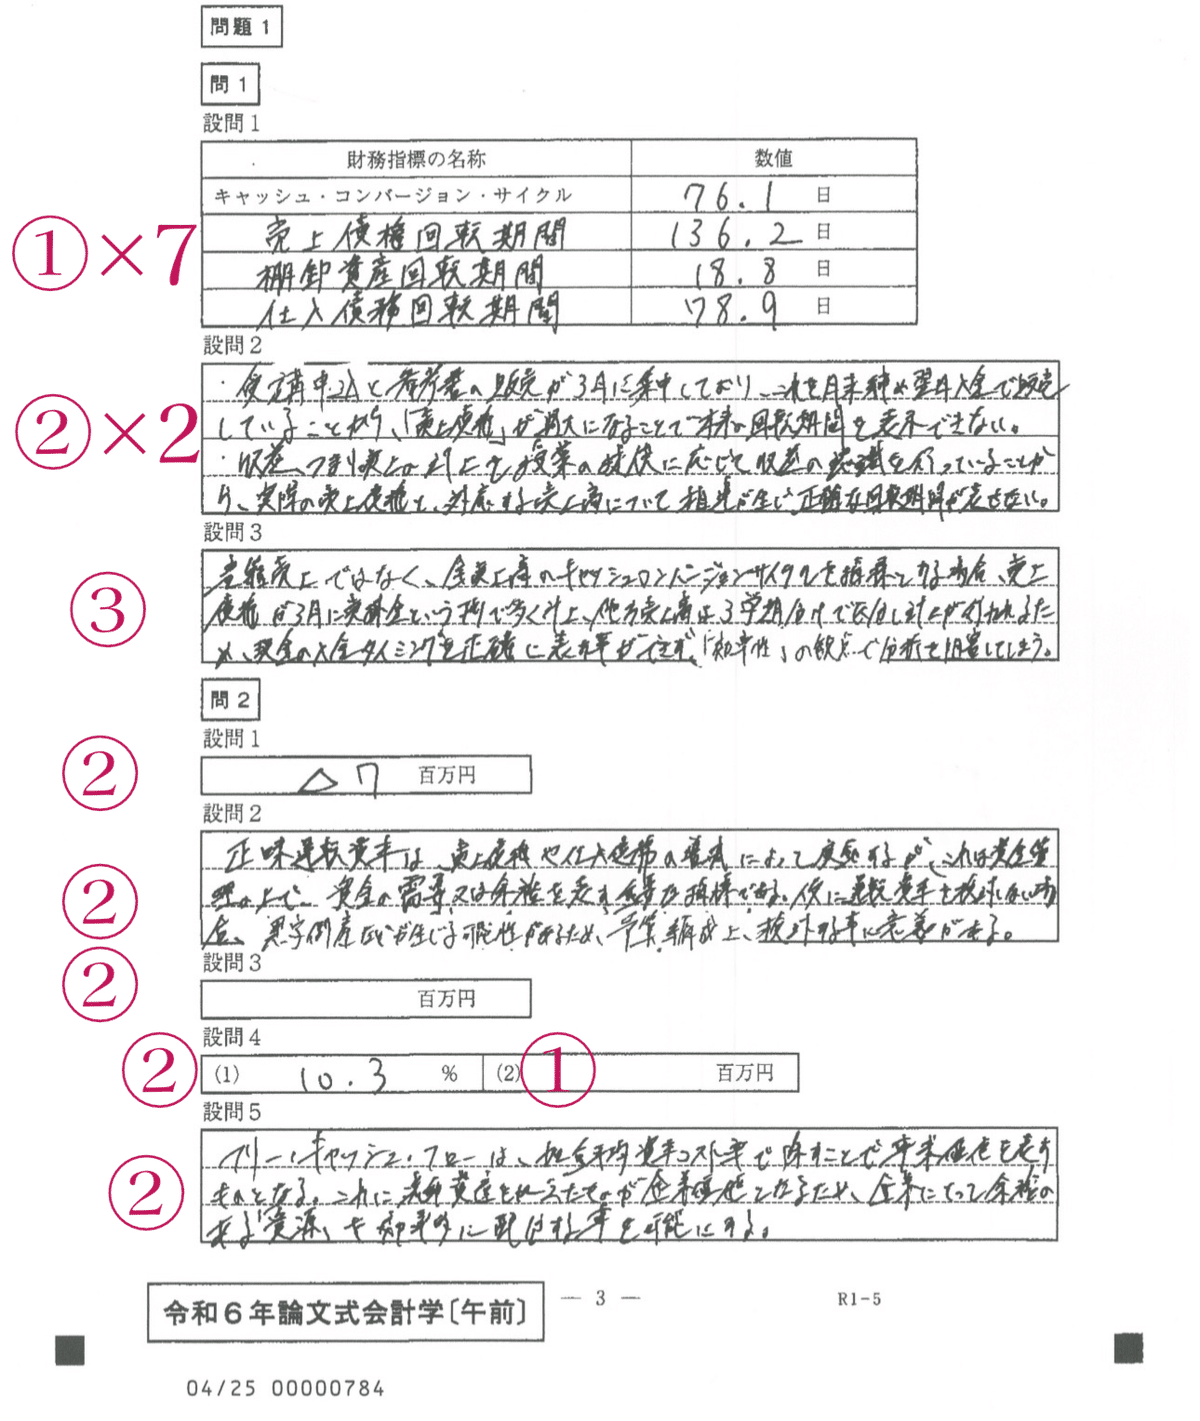 問題 1
問 1
設問 1
財務指標の名称 数値
キャッシュ・コンバージョン・サイクル 76.1 日
①×7 売上債権回転期間 136.2 日
棚卸資産回転期間 18.8 日
仕入債務回転期間 78.9 日
設問 2
・受講申込と参考書の販売が3月に集中しており、これを月末締め翌月入金で販売
②×2 していることから、「売上債権」が過大になることで本来の回転期間を表示できない。
・収益、つまり売上の計上を授業の提供に応じて収益の認識を行っていることか
ら、実際の売上債権と、対応する売上高について相違が生じ正確な回転期間が表せない。
設問 3
ではなく、全売上高のキャッシュコンバージョンサイクルを指標とする場合、売上
③ 債権が3月に受講金という形で多く計上、他方売上高は3学期分けで区分し計上が行われるた
め、現金の入金タイミングを正確に表す事ができず、「効率性」の観点で分析を阻害してしまう。
問 2
設問 1
② △7 百万円
設問 2
正味運転資本は、売上債権や仕入債務の増減によって変動するが、これは資金管
② 理の上で、資金の需要又は余裕を表す重要な指標である。仮に運転資本を検討しない場
合、黒字倒産が生じる可能性があるため、予算編成上、検討する事に意義がある。
設問 3
② 百万円
設問 4
② (1) 10.3 % (2) ① 百万円
設問 5
フリー・キャッシュ・フローは、加重平均資本コスト率で除すことで事業価値を表す
② ものとなる。これに非事業資産を加えたものが企業価値となるため、企業にとって余裕の
ある「資源」を効率的に配分する事を可能にする。
令和6年論文式会計学〔午前〕
― 3 ―
R1-5
04/25 00000784